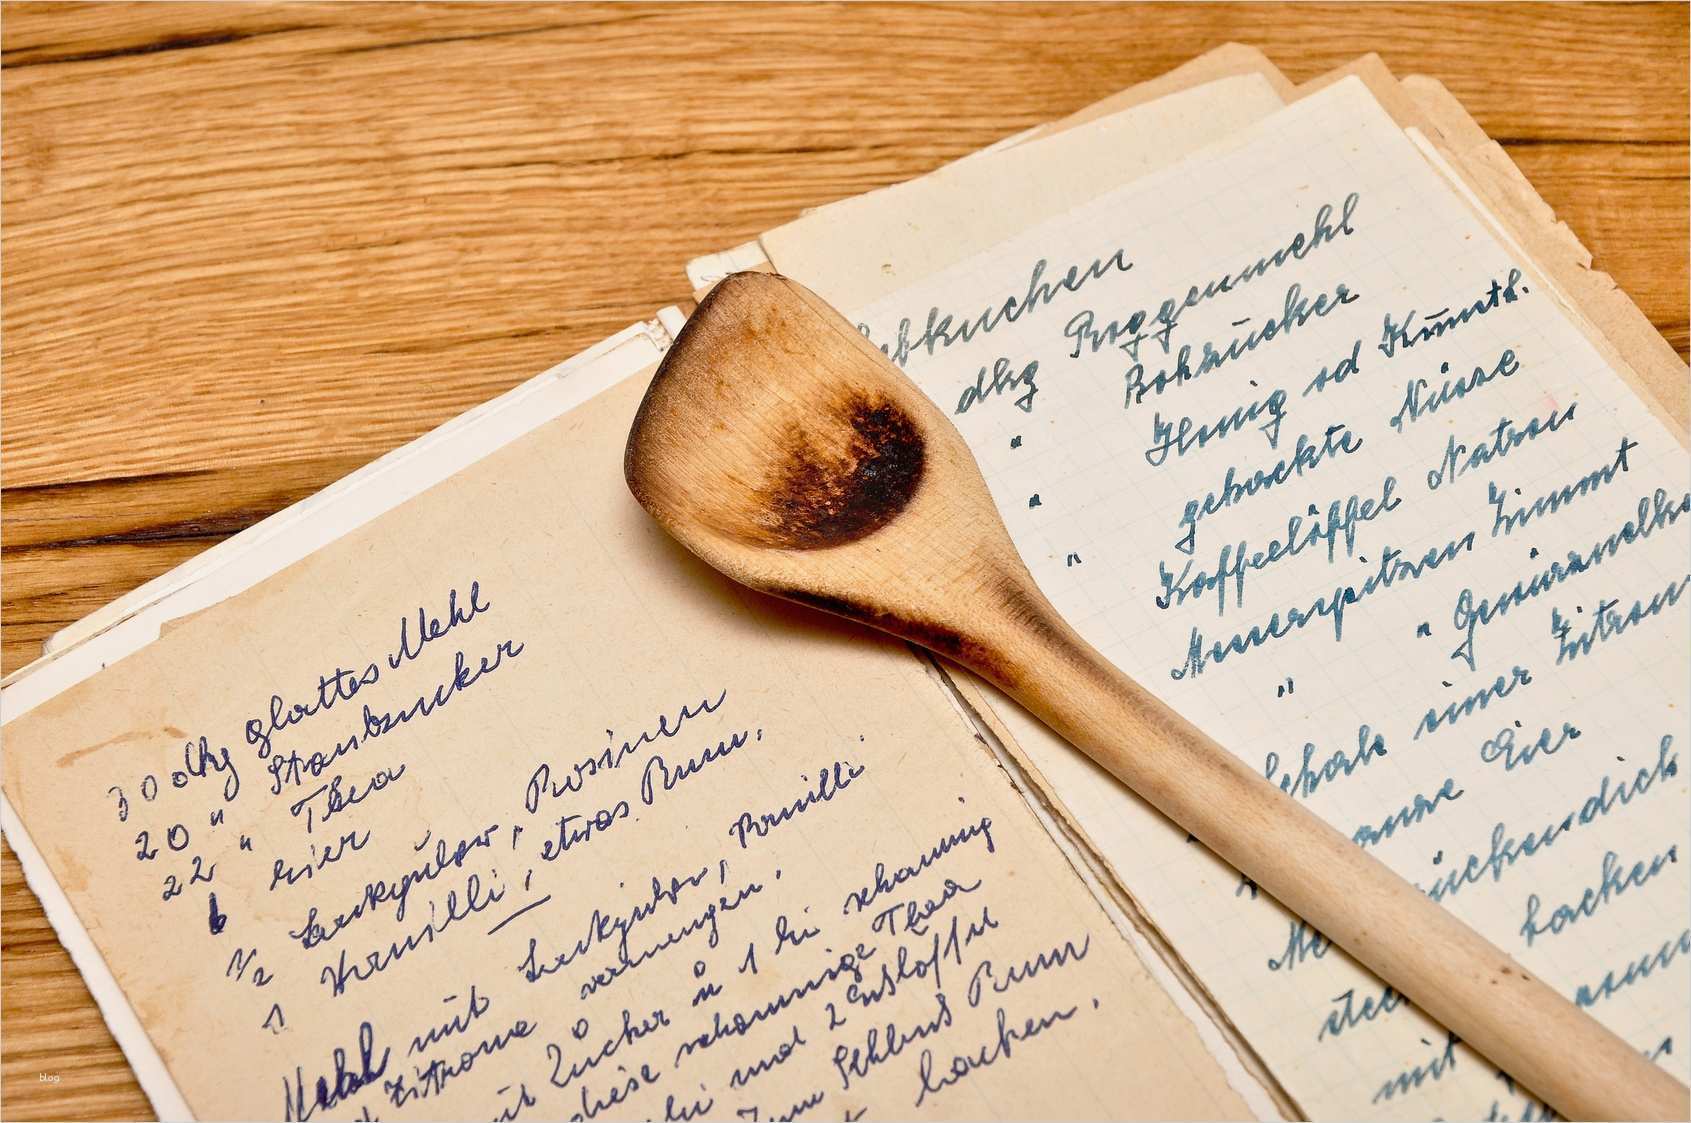 30 dkg glattes Mehl
20 " Staubzucker
22 " Thea
6 Eier
1/2 Backpulver, Rosinen
1 Vanilli, etwas Rum.
Mehl mit Backpulver, Vanilli
Zitrone vermengen.
Zucker u 1 Ei schaumig
diese schaumige Thea
und 2 Esslöffel
Zum Schluß Rum
backen.
ebkuchen
dkg Roggenmehl
" Rohzucker
" Honig od Kunsth.
" gehackte Nüsse
Kaffeelöffel Natron
Messerspitzen Zimmt
" "
Schale einer Zitron
ganze Eier
rückendick
backen
mit
blog